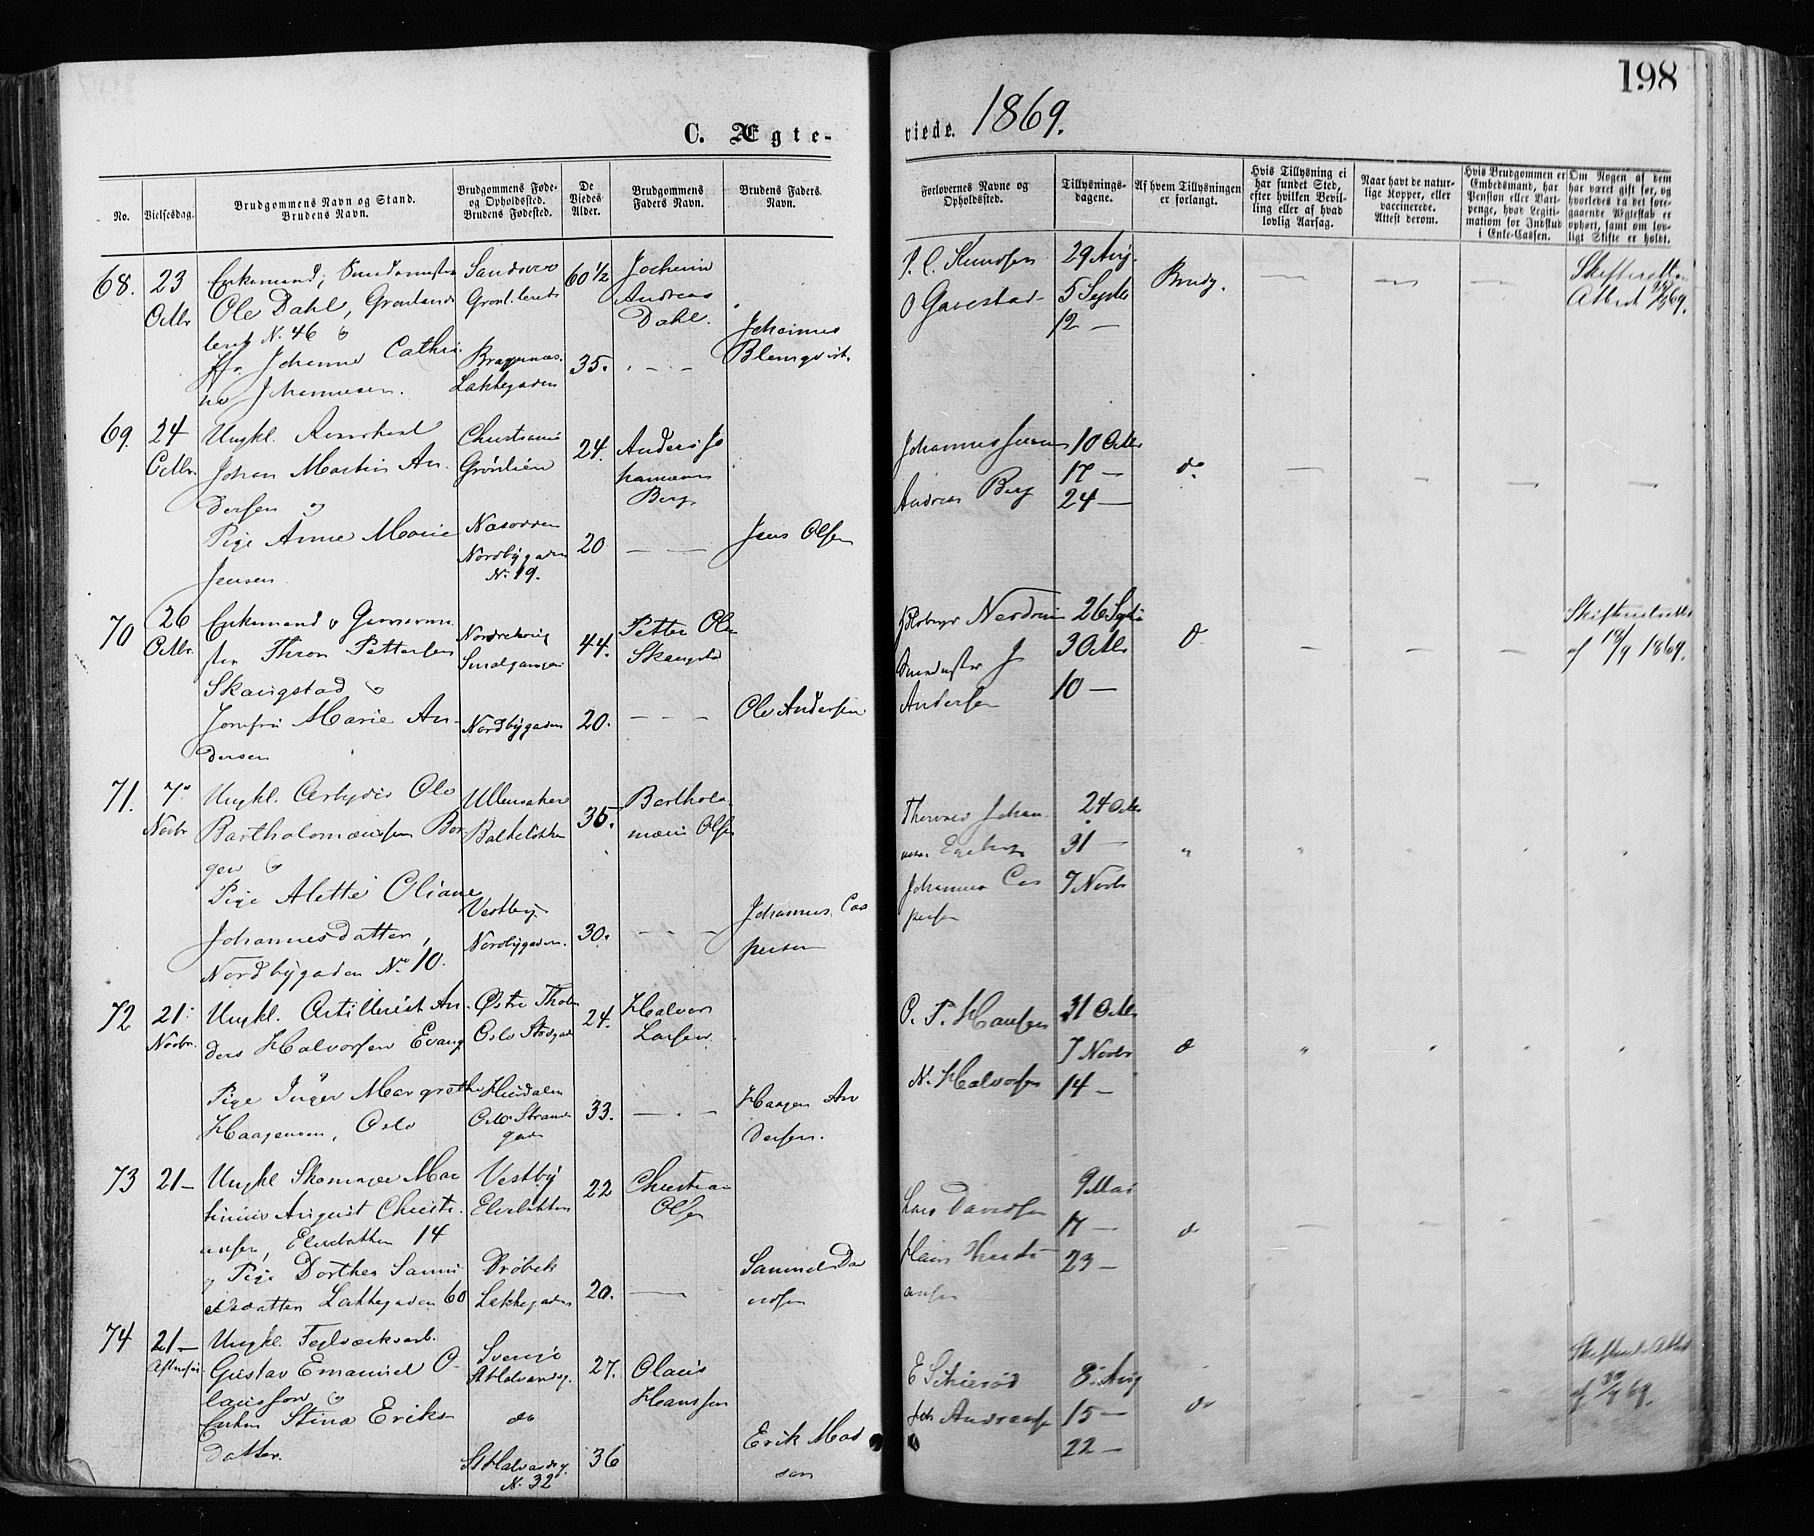 198
C. Ægte-
viede. 1869.
No.
Vielsesdag.
Brudgommens Navn og Stand.
Brudens Navn.
Brudgommens Føde-
og Opholdssted.
Brudens Fødested.
De
Viedes
Alder.
Brudgommens
Faders Navn.
Brudens Faders
Navn.
Forlovernes Navne og
Opholdssted.
Tillysnings-
dagene.
Af hvem Tillysningen
er forlangt.
Hvis Tillysning ei
har fundet Sted,
efter hvilken Bevil-
ling eller af hvad
lovlig Aarsag.
Naar havt de natur-
lige Kopper, eller
vaccinerede.
Attest derom.
Hvis Brudgommen er
Embedsmand, har
Pension eller Vart-
penge, hvad Legiti-
mation for Indskud
i Enke-Cassen.
Om Nogen af dem
har været gift før, og
hvorledes da det fore-
gaaende Ægteskab er
ophørt, samt om lov-
ligt Skifte er holdt.
68.
23
Octbr
Enkemand,
Ole Dahl, Grønlands
leret N. 46 &
Jfr. Johanne Cathri-
ne Johannesen.
Grønl.leret
Bragernes
Lakkegaden
60 1/2
35.
Andreas
Dahl.
Johannes
Blomqvist.
P. C. Knudsen
O Gavestad
29 Aug.
5 Septbr
12 —
Brudg.
69.
24
Octbr.
Ungkl.
Johan Martin An-
dersen og
Pige Anne Marie
Jensen
Christiania
Grønlien
Næsodden
Nordbygaden
N. 19.
24.
20
Anders Jo
hannesen
Berg
Jens Olsen
Johannes Jensen
Andreas Berg
10 Octbr
17 —
24 —
do
70
26
Octbr.
Enkemand &
Thron Pettersen
Skaugstad &
Jomfru Marie An-
dersen
Nordbygaden
44.
20.
Petter Ole
Skaugstad
Ole Andersen
Andersen
26 Septbr
3 Octbr
10 —
do
af 18/9 1869.
71.
7.
Novbr
Ungkl. Arbeider Ole
Bartholomæussen Bor
gen &
Pige Alette Oliane
Johannesdatter,
Nordbygaden No 10.
Ullensaker
Balkeløkken
Vestby
Nordbygaden.
35.
30.
Bartholo
mæus Olsen
Johannes Cas
persen
Johannes Cas
persen
24 Octbr
31 —
7 Novbr
72
21.
Novbr.
Ungkl. Artillerist An-
ders Halvorsen Evang
Pige Inger Margrethe
Haagensen, Oslo
Østre Thoten
Oslo Stadgade
Oslo Strand
gade
24.
33.
Halvor
Larsen
Haagen An
dersen.
O. P. Hansen
N. Halvorsen
31 Octbr
7 Novbr
14 —
do
73
21 —
Ungkl Skomager Mar
tinius August Christi-
ansen, Elvebakken 14
& Pige Dorthea Samu
elsdatter Lakkegaden 60
Vestby
Elvebakken
Drøbak
Lakkegaden
22
20.
Christian
Olsen
Samuel Da
vidsen
Lars Davidsen
Hans Christi
ansen
9 Mai
17 —
23 —
do
74
21 —
Ungkl. Teglværksarb.
Gustav Emanuel O-
lausson &
Enken Stina Eriks
datter.
Sverige
St Halvardsg.
do
St Halvardsg.
N. 32
27.
36
Olaus
Hansson
Erik Mat
son
8 Aug
15 —
22 —
do